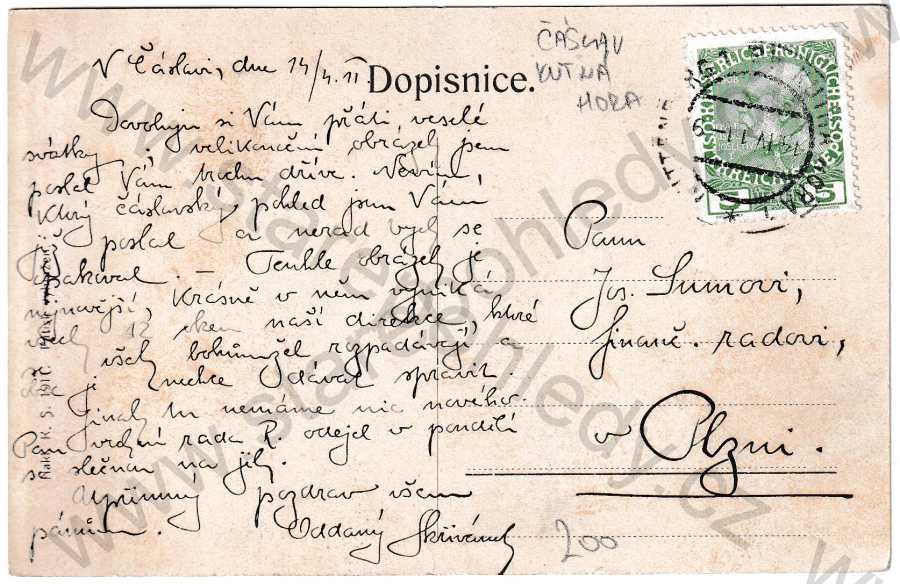 V Čáslavi, dne 14/4. 11.
Dopisnice.
ČÁSLAV
KUTNÁ
HORA
Dovoluji si Vám přáti veselé
svátky. velikonoční obrázek jsem
poslal Vám trochu dříve. Nevím,
který čáslavský pohled jsem Vám
již poslal a nerad bych se
opakoval. – Tenhle obrázek je
nejnovější, krásně v něm vyniká
všech 12 oken naší direkce, které
se všek bohužel rozpadávají a
je nechce dávat spravit.
Jinak tu nemáme nic nového.
Pan vrchní rada R. odejel v pondělí
se slečnou na jih.
Upřímný pozdrav všem
pánům. Oddaný Skřivánek
Panu
Jos. Šumovi,
finanč. radovi,
v Plzni.
200